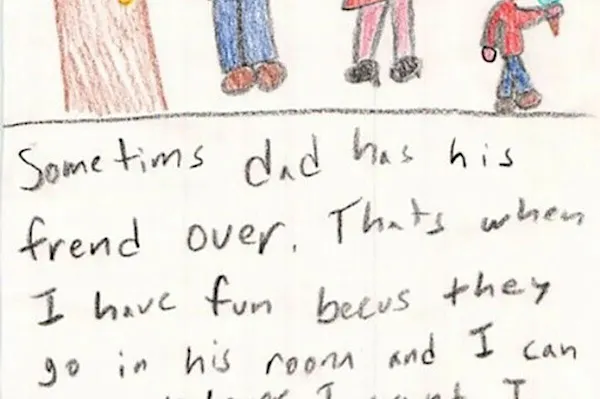 Sometims dad has his
frend over. Thats when
I have fun becus they
go in his room and I can
I want I